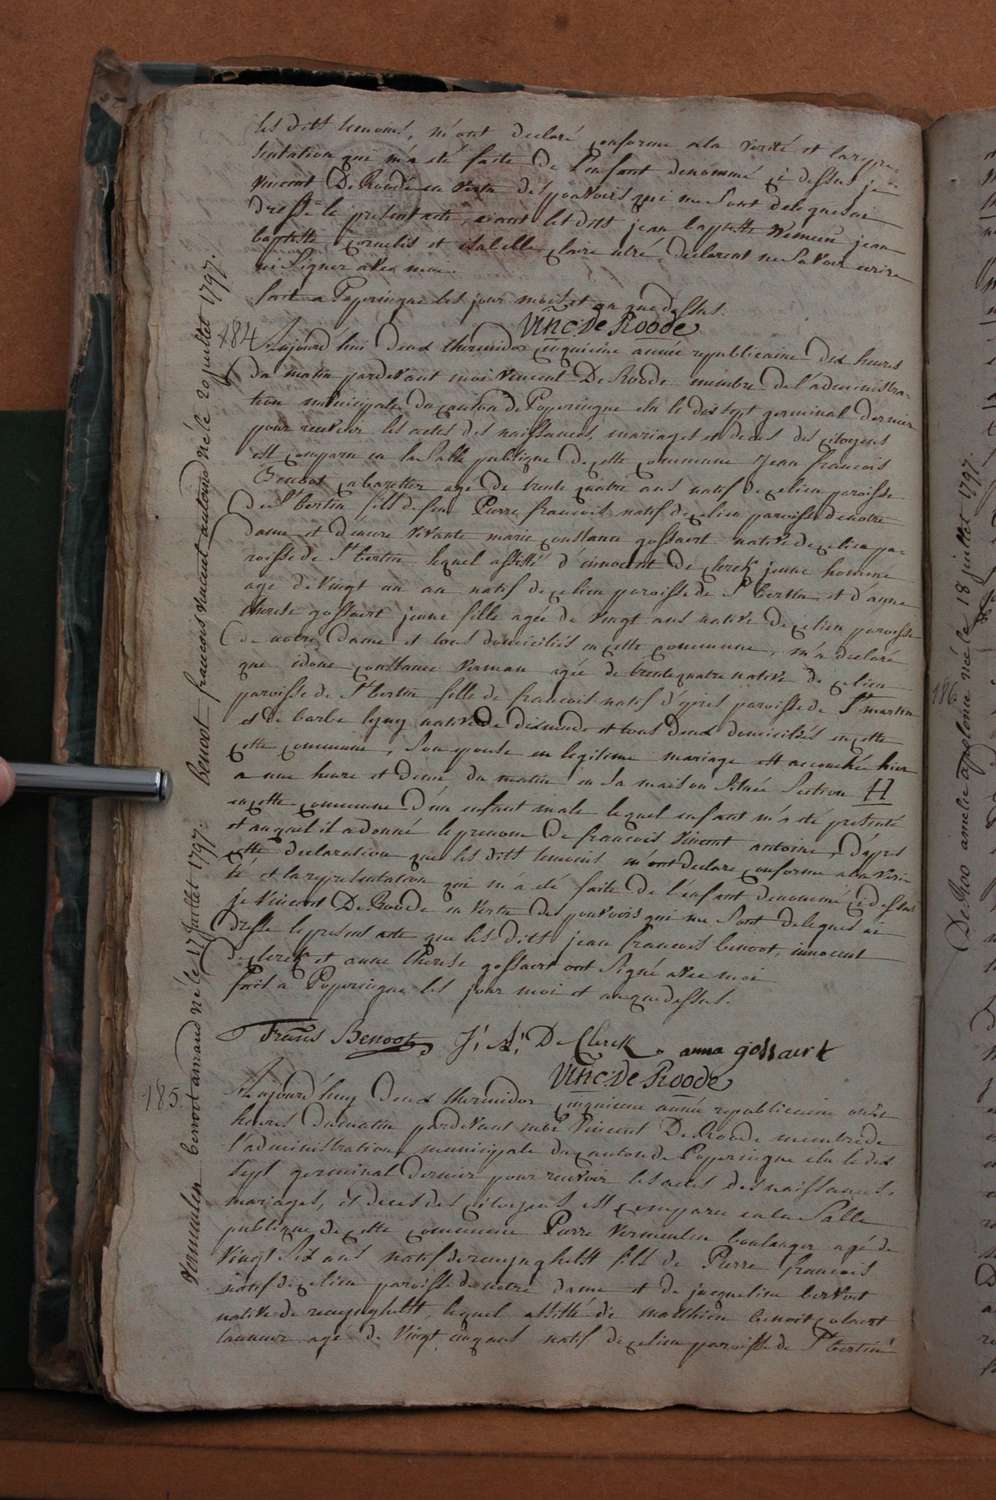 les ditts temoins, m'ont declaré conforme a la verité et la repre
sentation qui m'a été faite de l'enfant denommé ci dessus je
Vincent De Roode en vertu des pouvoirs qui me sont delegués ai
dressé le présent acte, aiant les ditts jean baptiste jean
baptiste Cornelis et isabelle claire declarent ne savoir ecrire
ni signer avec moi
fait a Poperingue les jour mois et an que dessus.
Vinc: De Roode
184 Aujourd'hui deux thermidor cinquieme année republicaine dix heures
du matin pardevant moi Vincent De Roode membre de l'administra-
tion municipale du canton de Poperingue elu le dix sept germinal dernier
pour recevoir les actes des naissances, mariages et deces des citoyens
est comparu en la salle publique de cette commune Jean francois
Benoot cabaretier agé de trente quatre ans natif de ce lieu paroisse
de St bertin fils de feu Pierre francois natif de ce lieu paroisse de notre
dame et d'encore vivante marie constance gossaert native de ce lieu pa-
roisse de St bertin lequel assisté d'innocent De clerck jeune homme
agé de vingt un an natif de ce lieu paroisse de St Bertin et d'anne
therese gossaert jeune fille agée de vingt ans native de ce lieu paroisse
de notre dame et tous domiciliés en cette commune, m'a declaré
que idone constance verman agée de trente quatre native de ce lieu
paroisse de St bertin fille de francois natif d'ypres paroisse de St martin
et de barbe native de dixmude et tous deux domiciliés en cette
cette commune, son epouse en legitime mariage est accouchée hier
a une heure et demie du matin en sa maison située section H
en cette commune d'un enfant male lequel enfant m'a été presenté
et auquel il a donné le prenom de francois Vincent antoine, d'après
cette declaration que les ditts temoins m'ont declaré conforme a la veri-
té et la représentation qui m'a été faite de l'enfant denommé ci dessus
je Vincent De Roode en vertu des pouvoirs qui me sont delegués ai
dressé le présent acte que les ditts jean francois benoot, innocent
de clerck et anne therese gossaert ont signé avec moi
fait a Poperingue les jour mois et an que dessus.
Francs Benoot J: A: De Clerck anna gossaert
Vinc: De Roode
185. Aujourd'huy deux thermidor cinquieme année republicaine onze
heures du matin pardevant moi Vincent De Roode membre de
l'administration municipale du canton de Poperingue elu le dix
sept germinal dernier pour recevoir les actes des naissances,
mariages, et deces des citoyens est comparu en la salle
publique de cette commune Pierre Vermeulen boulanger agé de
vingt six ans natif de renynghelst fils de Pierre francois
natif de ce lieu paroisse de notre dame et de jacqueline
native de renynghelst lequel assisté de matthieu benoit
agé de vingt cinq ans natif de ce lieu paroisse de St bertin
Benoot francois vincent antoine né le 20 juillet 1797.
Vermeulen benoot amand né le 17 juillet 1797.
De Roo amelie applonie née le 18 juillet 1797.
186